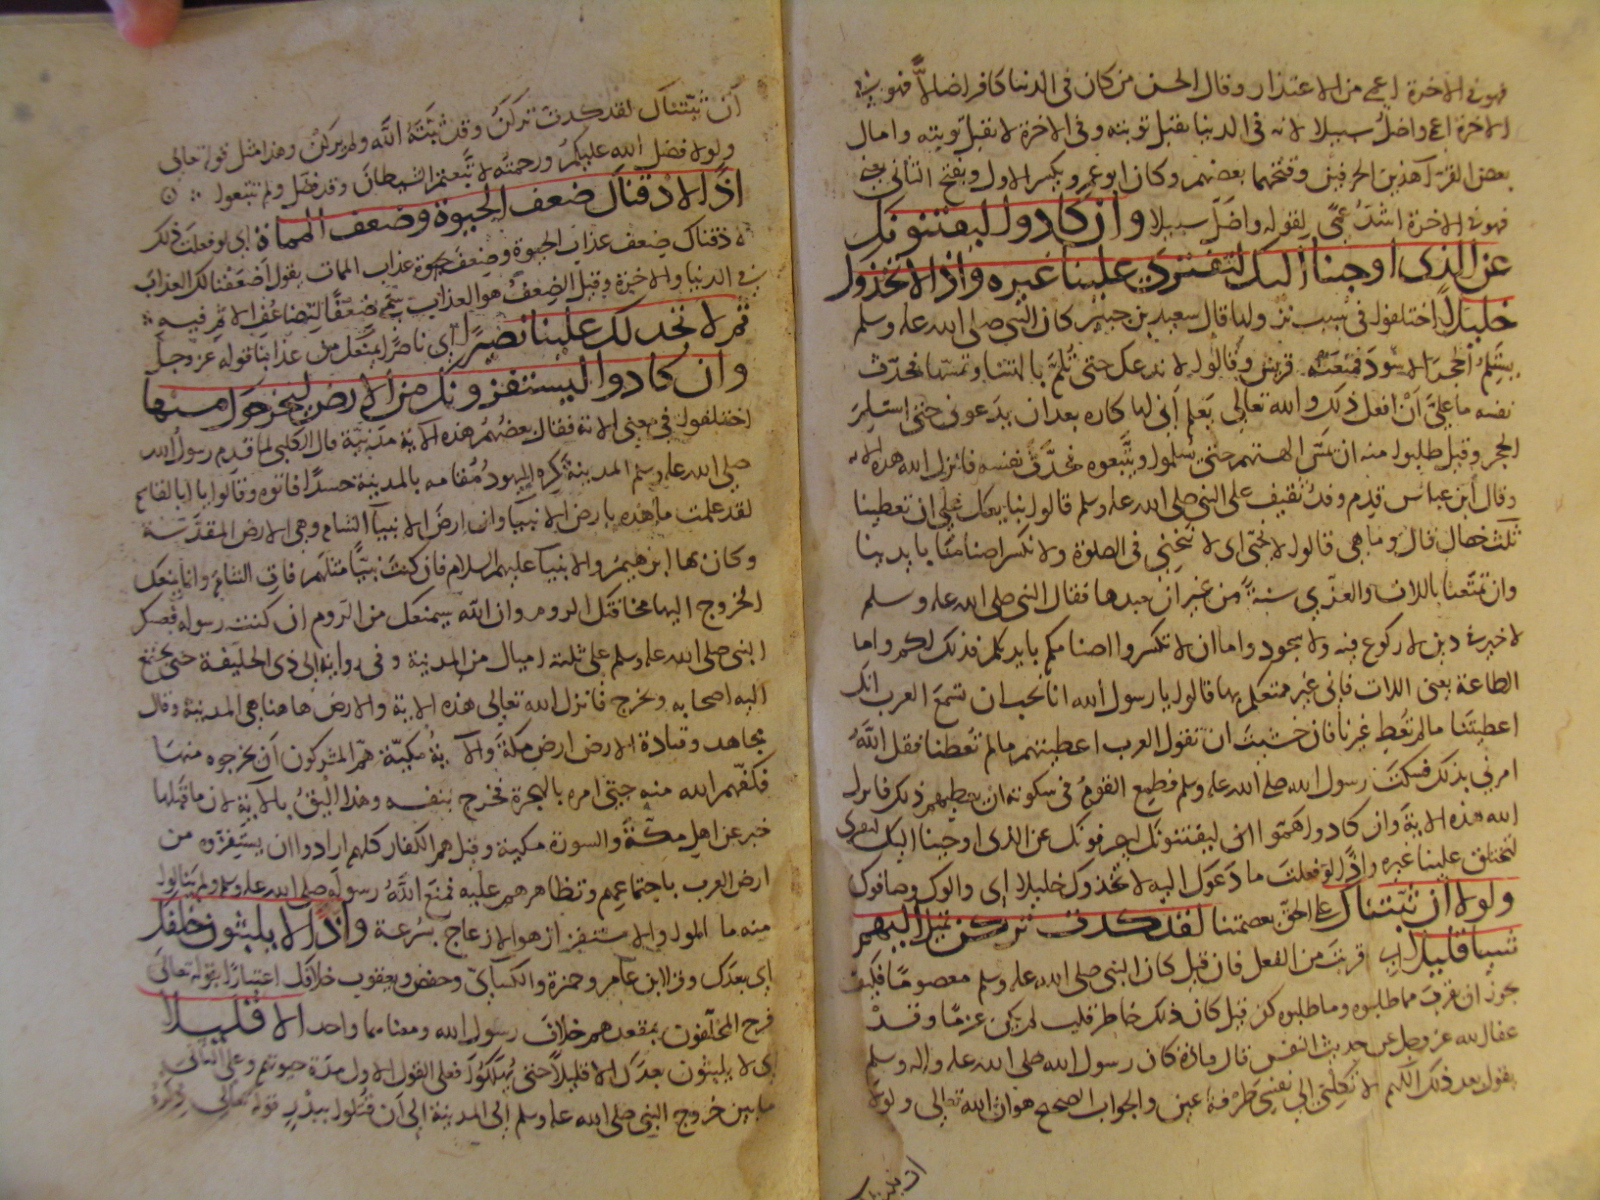 فهو فى الاخرة اعمى من الاعتذار وقال الحسن من كان فى الدنيا كافرا ضالاً فهو فى
الاخرة اعمى واضل سبيلا لانه فى الدنيا يقبل توبته وفى الاخرة لا يقبل توبته وامال
بعض القراء هذين الحرفين وفتحهما بعضهم وكان ابو عمرو يكسر الاول ويفتح الثانى يعنى
فهو فى الاخرة اشد عمى لقوله واضل سبيلا وان كادوا ليفتنونك
عن الذى اوحينا اليك لتفترى علينا غيره واذا لاتخذوك
خليلا اختلفوا فى سبب نزولها قال سعيد بن جبير كان النبى صلى الله عليه وسلم
يستلم الحجر الاسود فمنعته قريش وقالوا لا ندعك حتى تلم بالهتنا وتمسها فحدث
نفسه ما علىّ أن افعل ذلك والله تعالى يعلم انى لها كاره بعد ان يدعونى حتى استلم
الحجر وقيل طلبوا منه ان يمس الهتهم حتى يسلموا ويتبعوه فحدث نفسه فانزل الله هذه الاية
وقال ابن عباس قدم وفد ثقيف على النبى صلى الله عليه وسلم قالوا نبايعك على ان تعطينا
ثلث خصال قال وما هى قالوا لا نحنى اى لا ننحنى فى الصلوة ولا نكسر اصنامنا بايدينا
وان تمتعنا باللات والعزى سنة من غير ان نعبدها فقال النبى صلى الله عليه وسلم
لا خير فى دين لا ركوع فيه ولا سجود واما ان لا تكسروا اصنامكم بايديكم فذلك لكم واما
الطاعة يعنى اللات فانى غير ممتعكم بها قالوا يا رسول الله انا نحب ان تسمع العرب انك
اعطيتنا مالم تعط غيرنا فان خشيت ان تقول العرب اعطيتهم مالم تعطنا فقل الله
امرنى بذلك فسكت رسول الله صلى الله عليه وسلم فطمع القوم فى سكوته ان يعطيهم ذلك فانزل
الله هذه الاية وان كادوا هموا ليفتنونك ليصرفونك عن الذى اوحينا اليك لتفترى
لتختلق علينا غيره واذا لو فعلت ما دعوك اليه لاتخذوك خليلا اى والوك وصافوك
ولولا ان ثبتناك على الحق بعصمتنا لقد كدت تركن تميل اليهم
شيئا قليلا اى قربت من الفعل فان قيل كان النبى صلى الله عليه وسلم معصوما فكيف
يجوز ان يقرب مما طلبوه وما طلبوه كفر قيل كان ذلك خاطر قلب لم يكن عزما وقد
عفا الله عز وجل عن حديث النفس قال قتادة كان رسول الله صلى الله عليه واله وسلم
يقول بعد ذلك اللهم لا تكلنى الى نفسى طرفة عين والجواب الصحيح هو ان الله تعالى قال ولولا
ان ثبتناك لقد كدت تركن وقد ثبته الله ولم يركن وهذا مثل قوله تعالى
ولولا فضل الله عليكم ورحمته لاتبعتم الشيطان وقد فضل ولم يتبعوا
اذا لاذقناك ضعف الحيوة وضعف المماة اى لو فعلت ذلك
لاذقناك ضعف عذاب الحيوة وضعف عذاب الممات يقول اضعفنا لك العذاب
فى الدنيا والاخرة وقيل الضعف هو العذاب سمى ضعفا لتضاعف الالم فيه
ثم لا تجد لك علينا نصيرا اى ناصرا يمنعك من عذابنا قوله عز وجل
وان كادوا ليستفزونك من الارض ليخرجوك منها
اختلفوا فى معنى الاية فقال بعضهم هذه الاية مدنية قال الكلبى لما قدم رسول الله
صلى الله عليه وسلم المدينة كره اليهود مقامه بالمدينة حسدا فاتوه وقالوا يا ابا القاسم
لقد علمت ما هذه بارض الانبيا وان ارض الانبيا الشام وهى الارض المقدسة
وكان بها ابرهيم والانبيا عليهم السلام فان كنت نبيا مثلهم فات الشام وانما يمنعك
الخروج اليها مخافتك الروم وان الله سيمنعك من الروم ان كنت رسوله فعسكر
النبى صلى الله عليه وسلم على ثلثة اميال من المدينة وفى رواية الى ذى الحليفة حتى يجتمع
اليه اصحابه ويخرج فانزل الله تعالى هذه الاية والارض هاهنا هى المدينة وقال
مجاهد وقتادة الارض ارض مكة والاية مكية هم المشركون أن يخرجوه منها
فكفهم الله عنه حتى امره بالهجرة فخرج بنفسه وهذا اليق بالاية لان ما قبلها
خبر عن اهل مكة والسورة مكية وقيل هم الكفار كلهم ارادوا ان يستفزوه من
ارض العرب باجتماعهم وتظاهرهم عليه فمنع الله رسوله صلى الله عليه وسلم ولم ينالوا
منه ما املوا والاستفزاز هو الازعاج بسرعة واذا لا يلبثون خلفك
اى بعدك وقرا ابن عامر وحمزة والكسائى وحفص ويعقوب خلافك اعتبارا بقوله تعالى
فرح المخلفون بمقعدهم خلاف رسول الله ومعناهما واحد الا قليلا
اى لا يلبثون بعدك الا قليلا حتى يهلكوا فعلى القول الاول مدة حيوتهم وعلى الثانى
ما بين خروج النبى صلى الله عليه وسلم الى المدينة الى أن قتلوا ببدر قوله تعالى